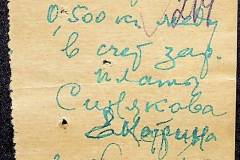 0,500 кг.
в счет зар.
платы
Синякова
Екатерина